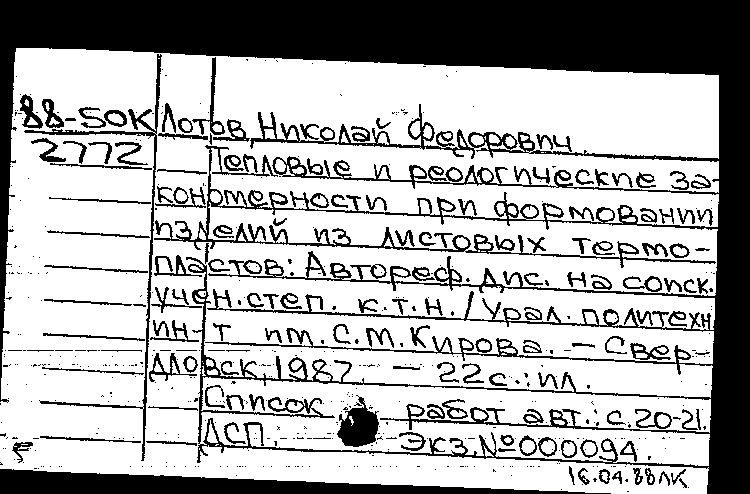 88-50К Лотов, Николай Федорович.
2772 Тепловые и реологические за-
кономерности при формовании
изделий из листовых термо-
пластов: Автореф. дис. на соиск.
учен. степ. к.т.н. / Урал. политехн.
ин-т им. С.М. Кирова. – Свер-
дловск, 1987. – 22 с.: ил.
Список работ авт.: с. 20-21.
ДСП. Экз. №000094.
16.04.88 ЛК